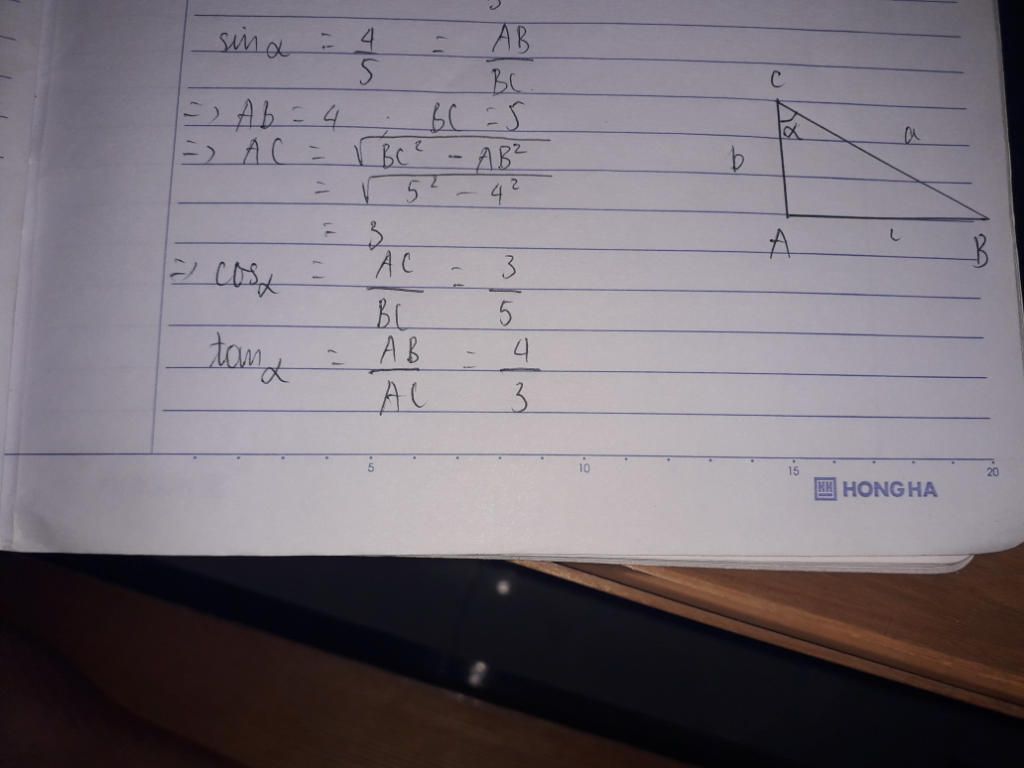 sin α = 4/5 = AB/BC
=> Ab = 4 . BC = 5
=> AC = √(BC² - AB²)
= √(5² - 4²)
= 3
=> cos α = AC/BC = 3/5
tan α = AB/AC = 4/3
C
α
a
b
A
c
B
5 10 15 20
HONG HA